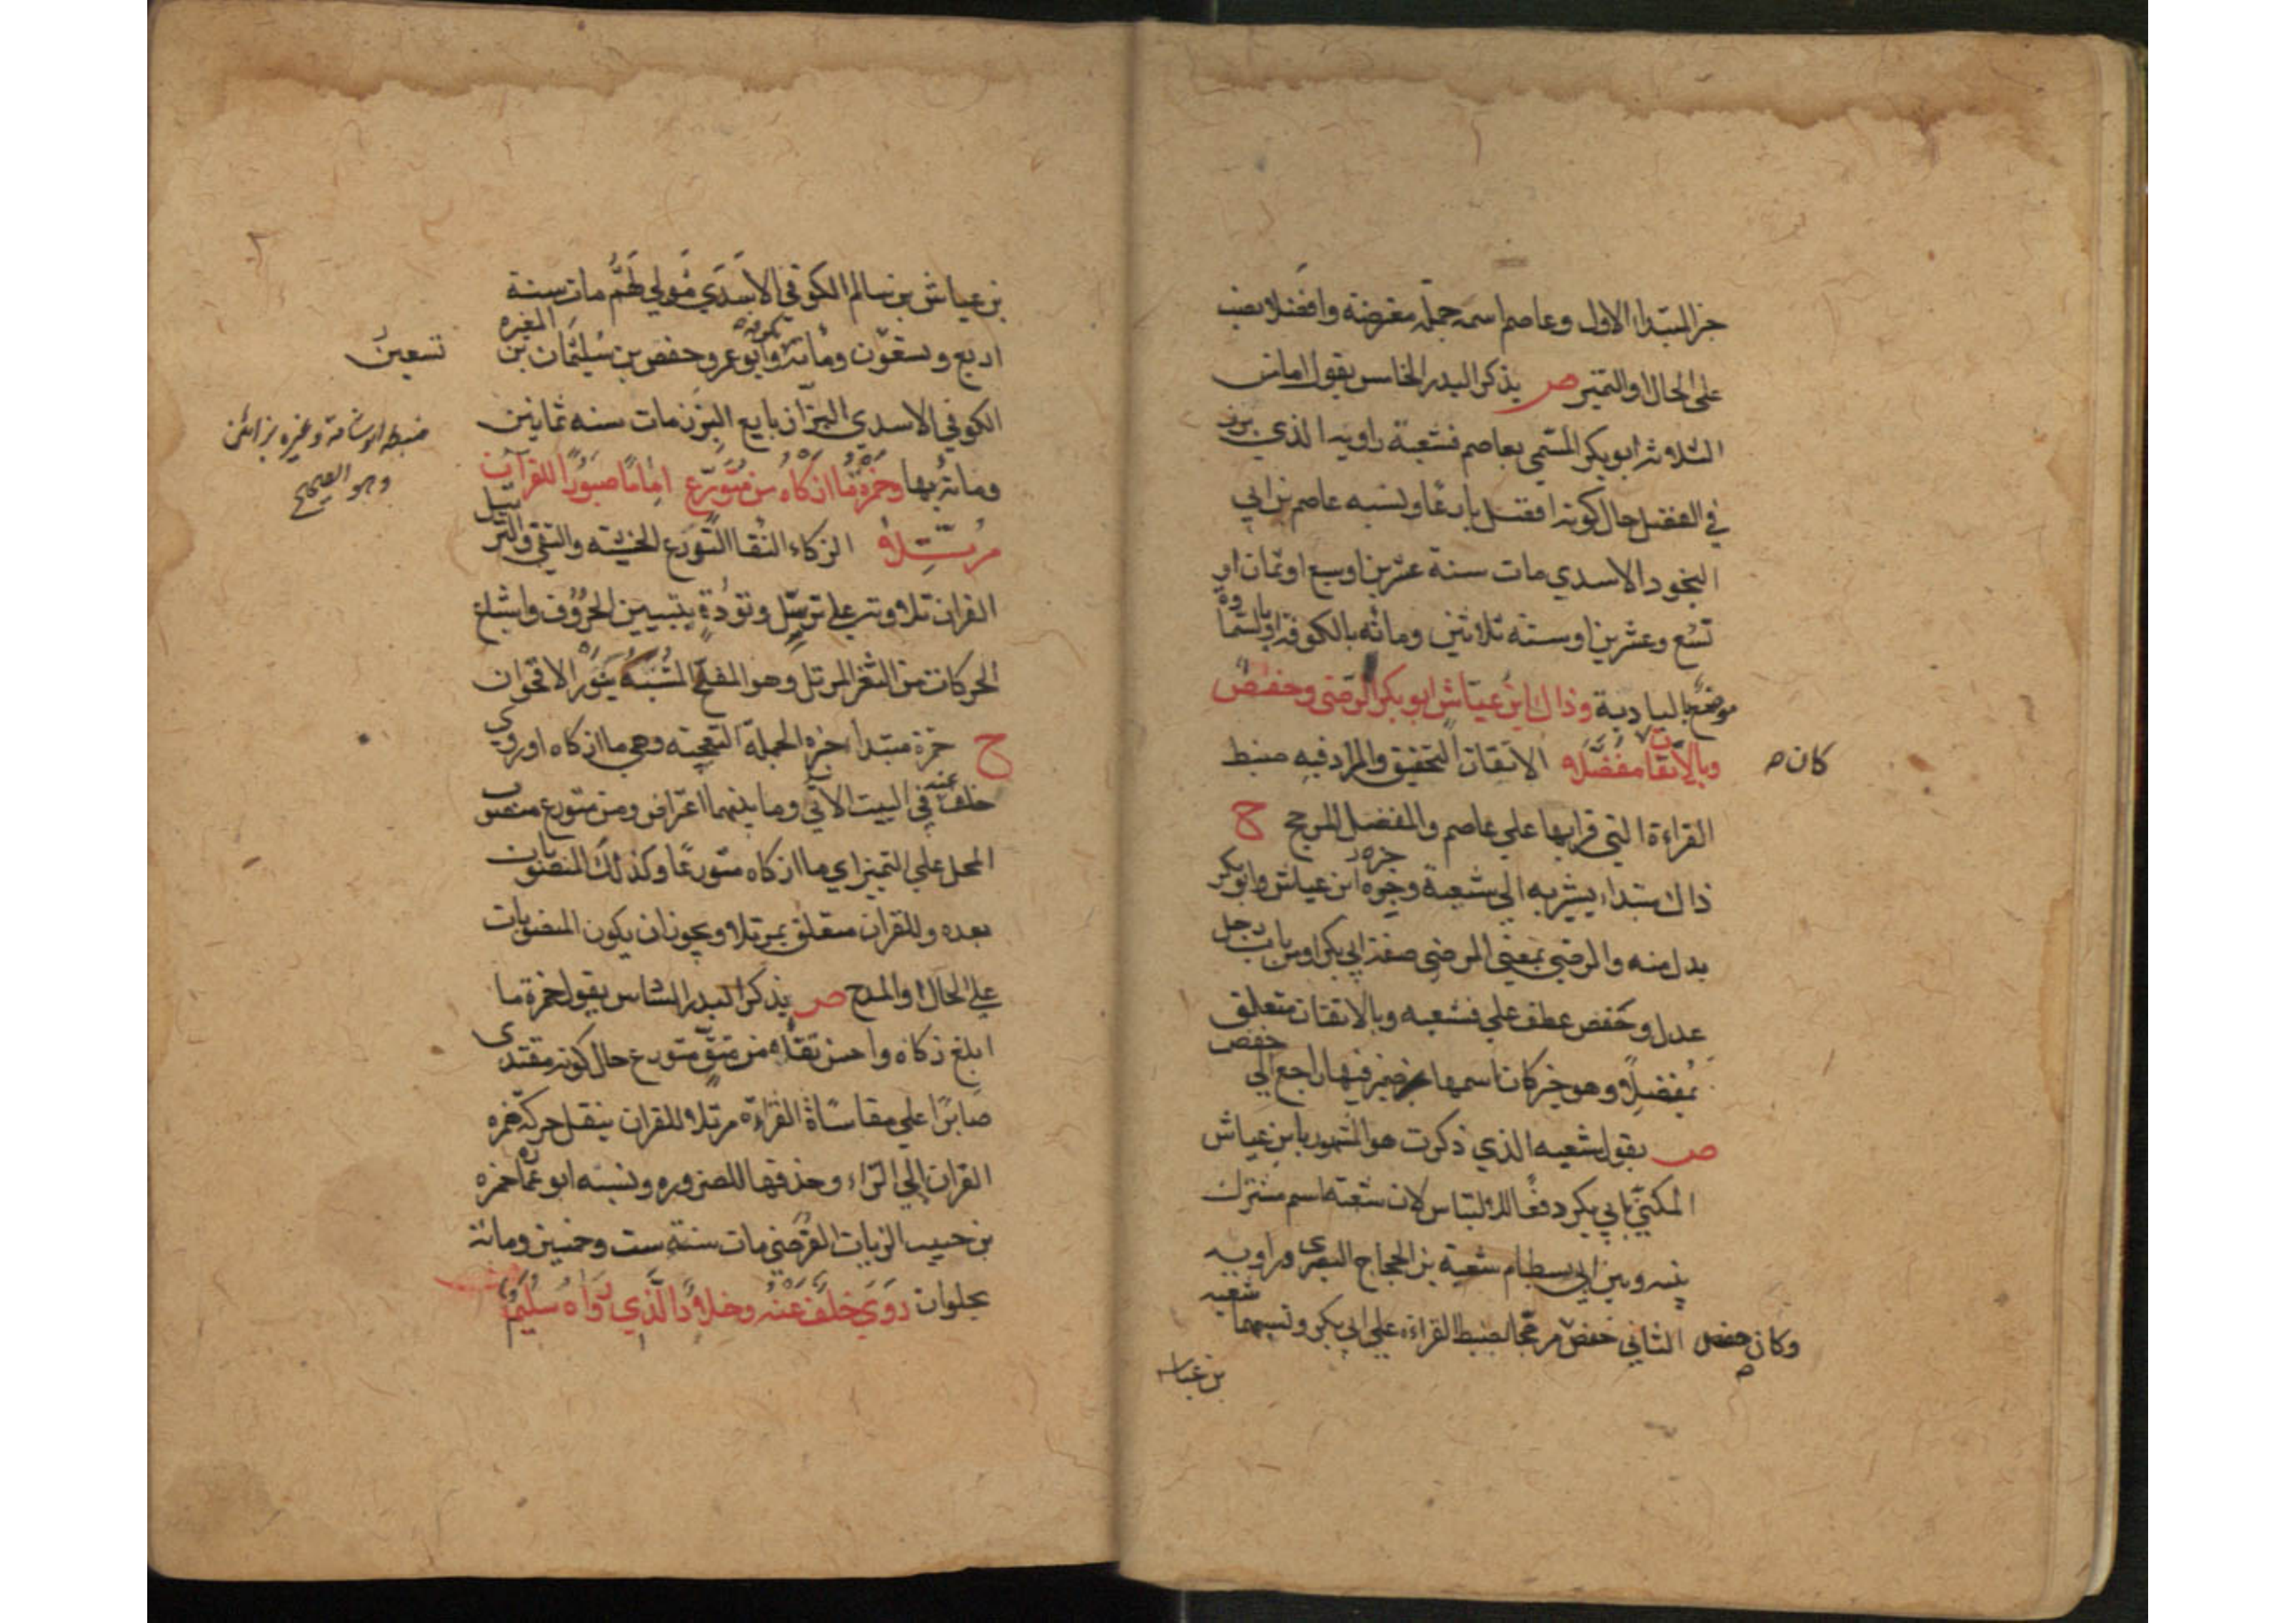 خبر المبتدأ الاول وعاصم اسمه جملة معترضة وافضلا نصب
على الحال او التمييز ص يذكر البدر الخامس يقول اما من
الثلاثة ابو بكر المسمى بعاصم فشعبة راويه الذي برز
في الفضل حال كونه افضل بارعا ونسبه عاصم بن ابي
النجود الاسدي مات سنة عشرين او سبع او ثمان او
تسع وعشرين او سنة ثلاثين ومائه بالكوفة او بالسماوة
موضع بالبادية وذاك ابن عياش ابو بكر الرضى وحفص
وبالاتقان مفضلا الاتقان التحقيق والمراد فيه ضبط
كان ص
القراءة التي قرا بها علي عاصم والمفضل المرجح ح
ذاك مبتداء يشير به الي شعبة وخبره ابن عياش وابو بكر
بدل منه والرضي بمعني المرضي صفة ابي بكر او من باب رجل
عدل وحفص عطف علي فشعبه وبالاتقان متعلق
بمفضلا وهو خبر كان اسمها ضمير فيها راجع الي حفص
ص يقول شعبه الذي ذكرت هو المشهور بابن عياش
المكنى بابي بكر دفعا للالتباس لان شعبة اسم مشترك
بينه وبين ابي بسطام شعبة بن الحجاج البصرى وراويه
وكان حفص الثاني حفص مرجحا لضبط القراءه علي ابي بكر ونسبهما شعبه
بن عياش
بن عياش بن سالم الكوفي الاسدي مولي لهم مات سنة
اربع وتسعون ومائة بكوفه وابو عمرو حفص بن سليمان بن المغيره
تسعين
الكوفي الاسدي البزاز بايع البز مات سنه ثمانين
ضبطه ابو شامة وغيره بزائين
وهو الصحيح
ومائة بها وحمزة ما ازكاه من متورع اماما صبورا للقران
مرتلا الزكاء النقا التورع الخشية والتقي والترتيل
القران تلاوته علي ترسل وتؤدة بتبيين الحروف واشباع
الحركات من الثغر المرتل وهو المفلج المشبه بنور الاقحوان
ح حمزة مبتدا خبره الجملة التعجبية وهي ما ازكاه او روي
خلف عنه في البيت الاتي وما بينهما اعتراض ومن متورع منصوب
المحل علي التمييز اي ما ازكاه متورعا وكذلك المنصوبان
بعده وللقران متعلق بمرتلا ويجوز ان يكون المنصوبات
علي الحال او المدح ص يذكر البدر السادس يقول حمزة ما
ابلغ زكاه واحسن تقاه من متق متورع حال كونه مقتدى
صابرا علي مقاساة القراءة مرتلا للقران ينقل حركة همزه
القران الي الراء وحذفها للضروره ونسبه ابو عمارة حمزه
بن حبيب الزيات الفرضي مات سنة ست وخمسين ومائة
بحلوان روي خلف عنه وخلاد الذي رواه سليم